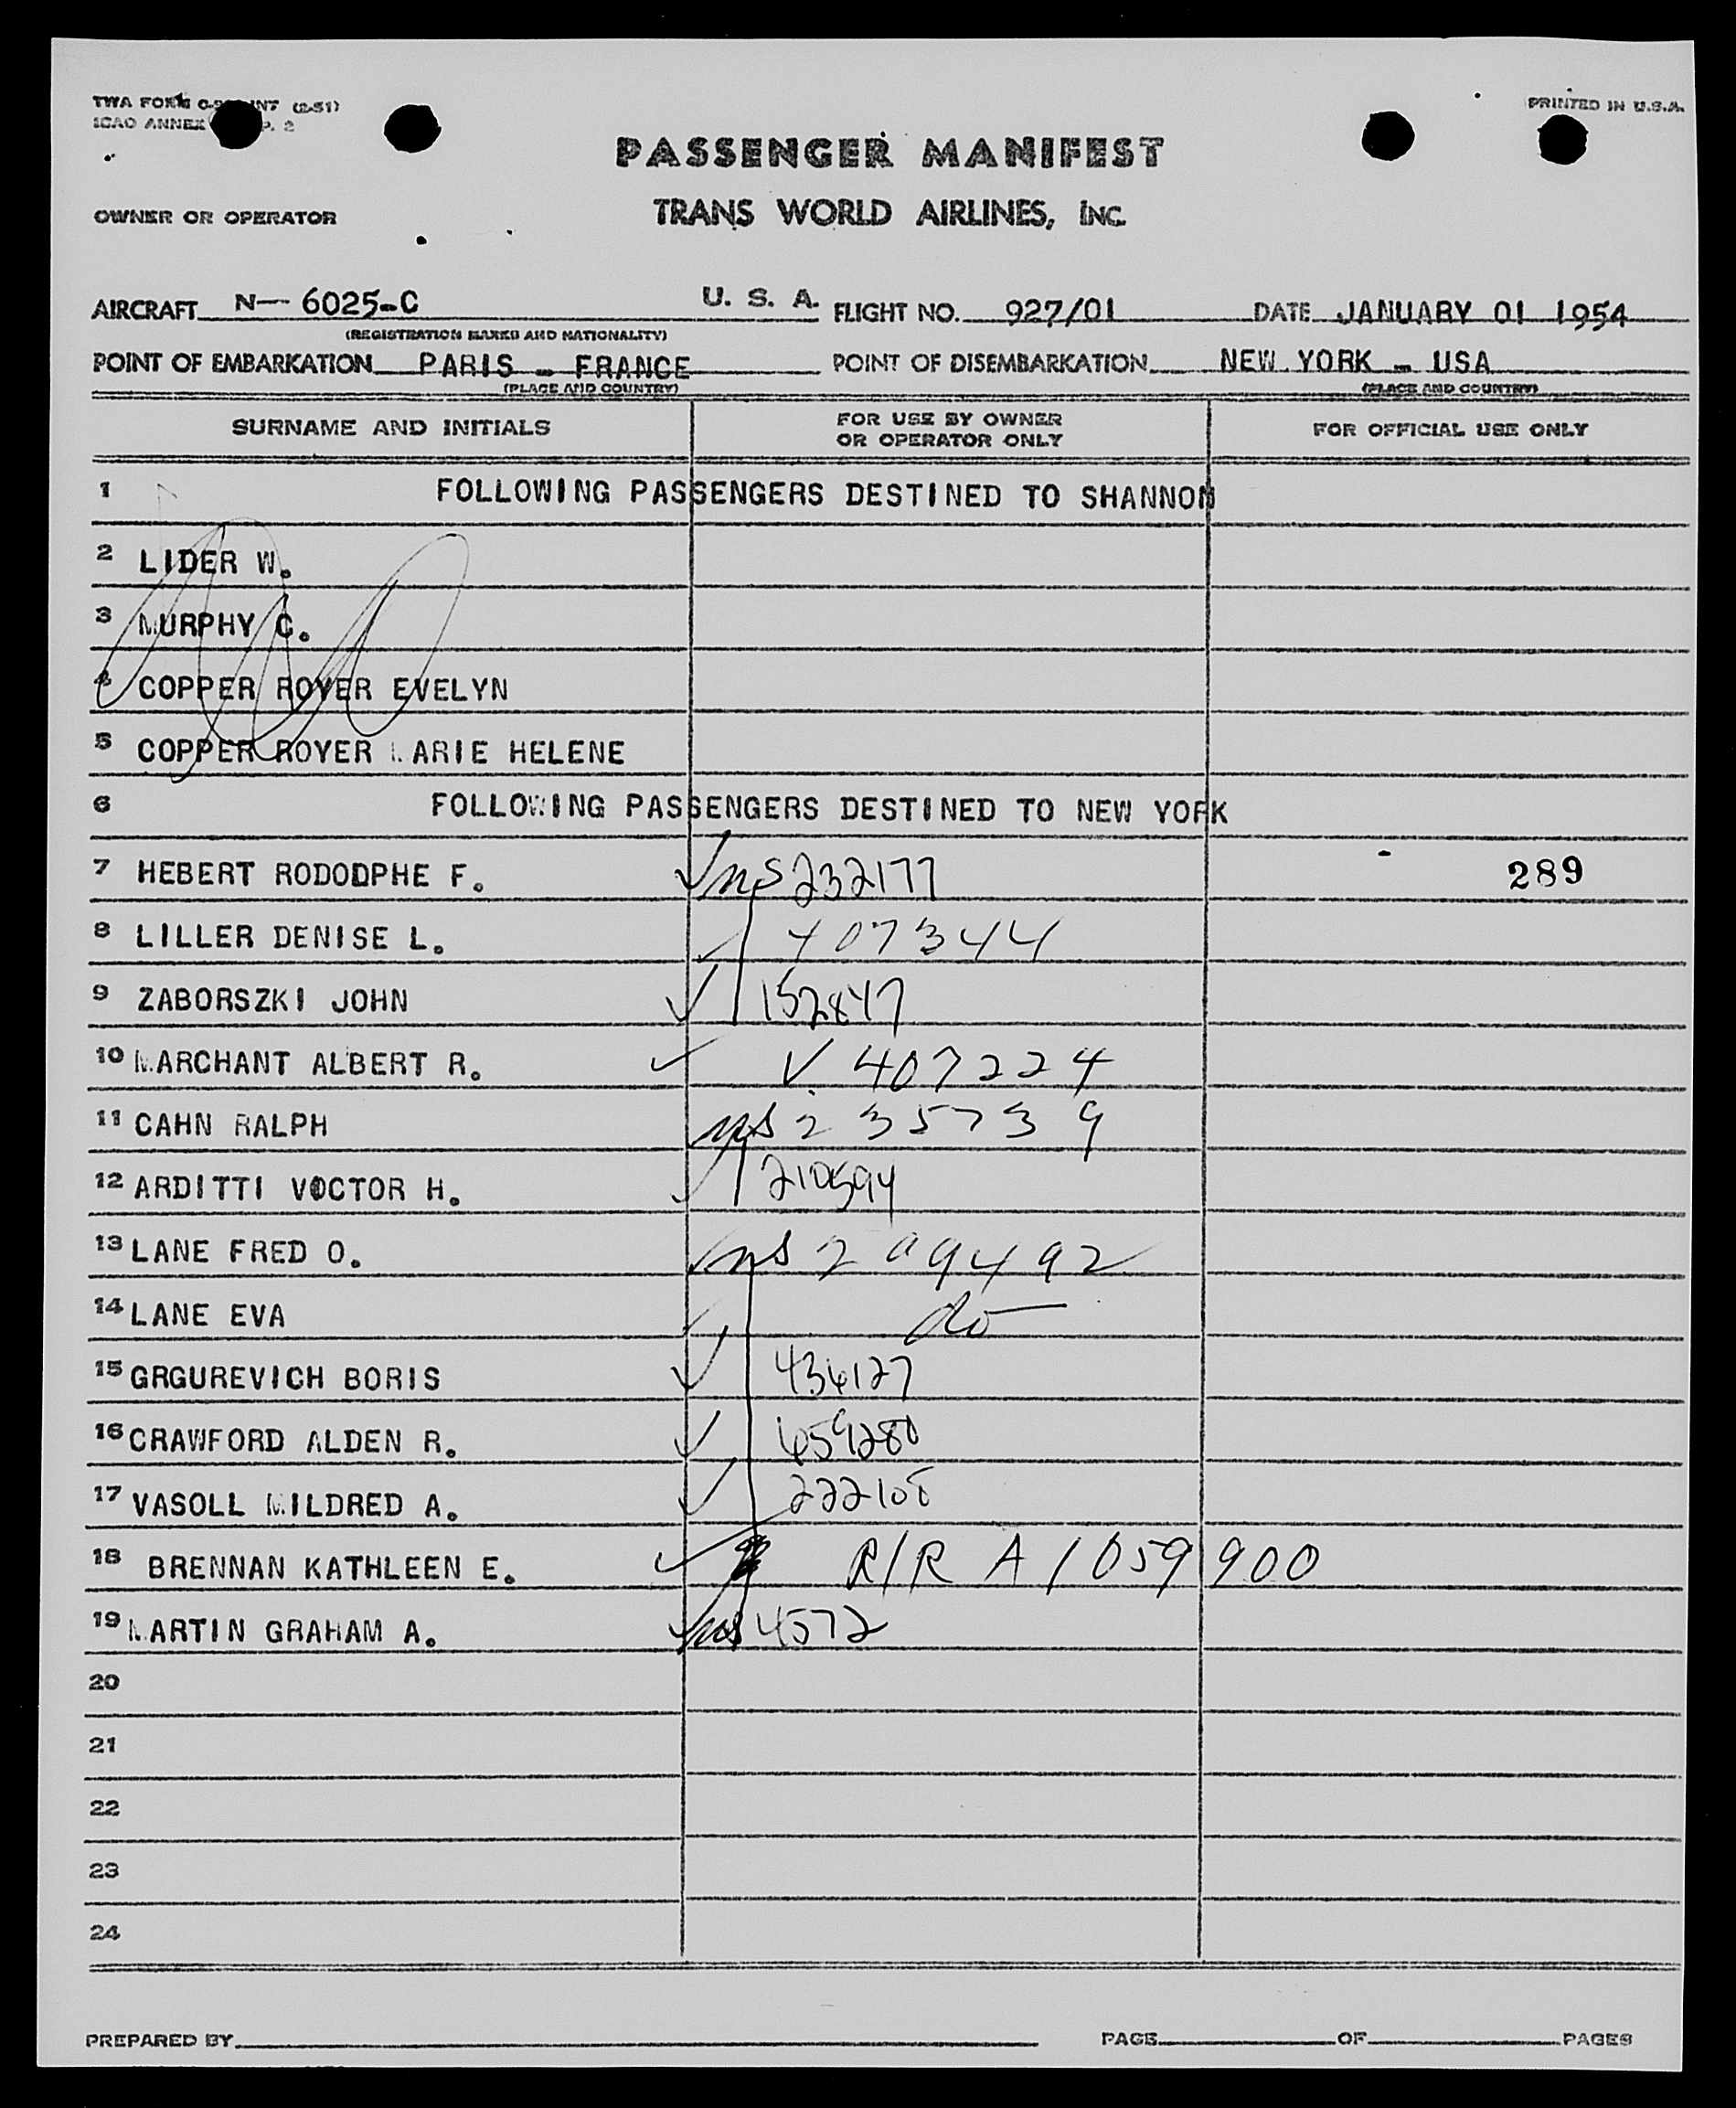 TWA FORM INT (2-51)
ICAO ANNEX P. 2
PRINTED IN U.S.A.
PASSENGER MANIFEST
OWNER OR OPERATOR
TRANS WORLD AIRLINES, INC.
AIRCRAFT N— 6025-C U. S. A. FLIGHT NO. 927/01 DATE JANUARY 01 1954
(REGISTRATION MARKS AND NATIONALITY)
POINT OF EMBARKATION PARIS - FRANCE POINT OF DISEMBARKATION NEW YORK - USA
(PLACE AND COUNTRY) (PLACE AND COUNTRY)
SURNAME AND INITIALS FOR USE BY OWNER OR OPERATOR ONLY FOR OFFICIAL USE ONLY
1 FOLLOWING PASSENGERS DESTINED TO SHANNON
2 LIDER W.
3 MURPHY C.
4 COPPER ROYER EVELYN
5 COPPER ROYER MARIE HELENE
6 FOLLOWING PASSENGERS DESTINED TO NEW YORK
7 HEBERT RODODPHE F. ns 232177 289
8 LILLER DENISE L. 407344
9 ZABORSZKI JOHN 152847
10 MARCHANT ALBERT R. V 407224
11 CAHN RALPH ns 235739
12 ARDITTI VOCTOR H. 210594
13 LANE FRED O. ns 209492
14 LANE EVA do
15 GRGUREVICH BORIS 436127
16 CRAWFORD ALDEN R.
17 VASOLL MILDRED A.
18 BRENNAN KATHLEEN E. R/R A 1059900
19 MARTIN GRAHAM A. ns 4572
20
21
22
23
24
PREPARED BY PAGE OF PAGES